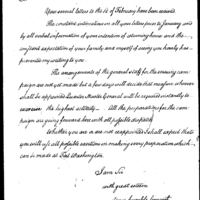 Your several letters to the 12 of February have been received.
The constant intimation in all your letters prior to January and
by all verbal information of your intention of returning home and the
anxious expectation of your family and myself of seeing you hourly has
prevented my writing to you.
The arrangements of the general staff for the ensuing campaign
are not yet made but a few days will decide that measure whoever
shall be appointed Quarter Master General will be required instantly to
exercise the highest activity. All the preparations for the campaign
are going forward here with all possible dispatch.
Whether you are or are not reappointed I shall expect that
you will use all possible exertion in making every preparation which
can is made at Fort Washington.
I am Sir
with great esteem
your humble servant